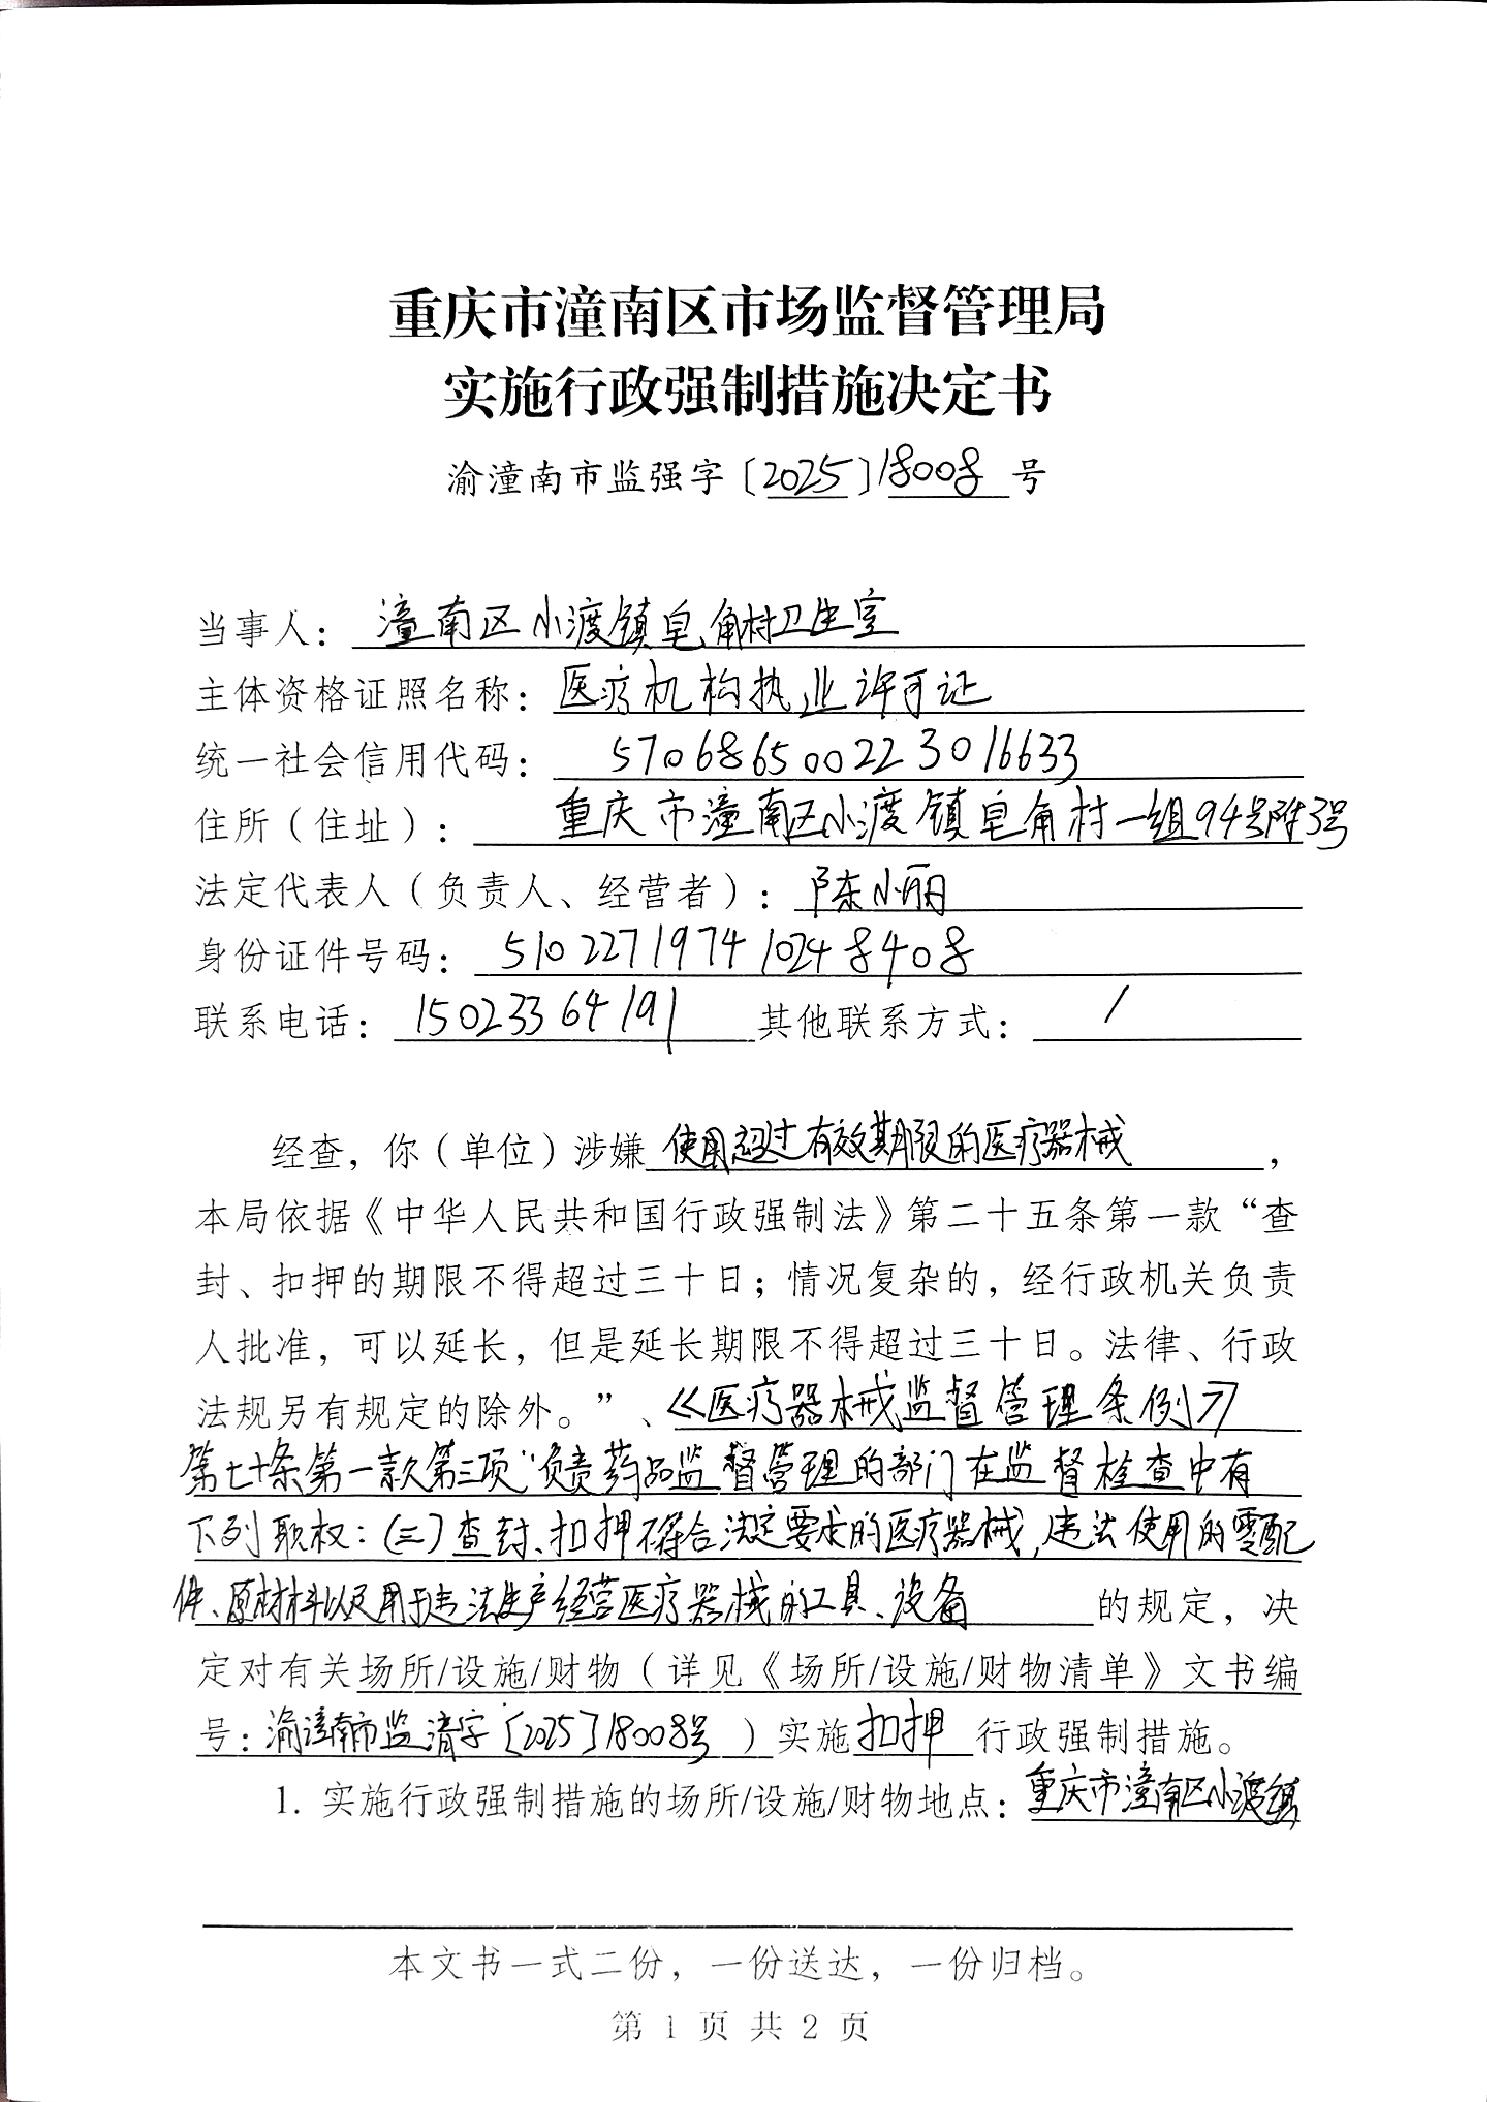 重庆市潼南区市场监督管理局
实施行政强制措施决定书
渝潼南市监强字〔2025〕18008号
当事人：潼南区小渡镇皂角村卫生室
主体资格证照名称：医疗机构执业许可证
统一社会信用代码：570686500223016633
住所（住址）：重庆市潼南区小渡镇皂角村一组94号附3号
法定代表人（负责人、经营者）：陈小丽
身份证件号码：510227197410248408
联系电话：15023364191 其他联系方式：/
经查，你（单位）涉嫌使用超过有效期限的医疗器械，
本局依据《中华人民共和国行政强制法》第二十五条第一款“查
封、扣押的期限不得超过三十日；情况复杂的，经行政机关负责
人批准，可以延长，但是延长期限不得超过三十日。法律、行政
法规另有规定的除外。”、《医疗器械监督管理条例》
第七十条第一款第三项“负责药品监督管理的部门在监督检查中有
下列职权：(三)查封、扣押不符合法定要求的医疗器械，违法使用的零配
件、原材料以及用于违法生产经营医疗器械的工具、设备 的规定，决
定对有关场所/设施/财物（详见《场所/设施/财物清单》文书编
号：渝潼南市监清字〔2025〕18008号）实施扣押行政强制措施。
1. 实施行政强制措施的场所/设施/财物地点：重庆市潼南区小渡镇
本文书一式二份，一份送达，一份归档。
第 1 页 共 2 页